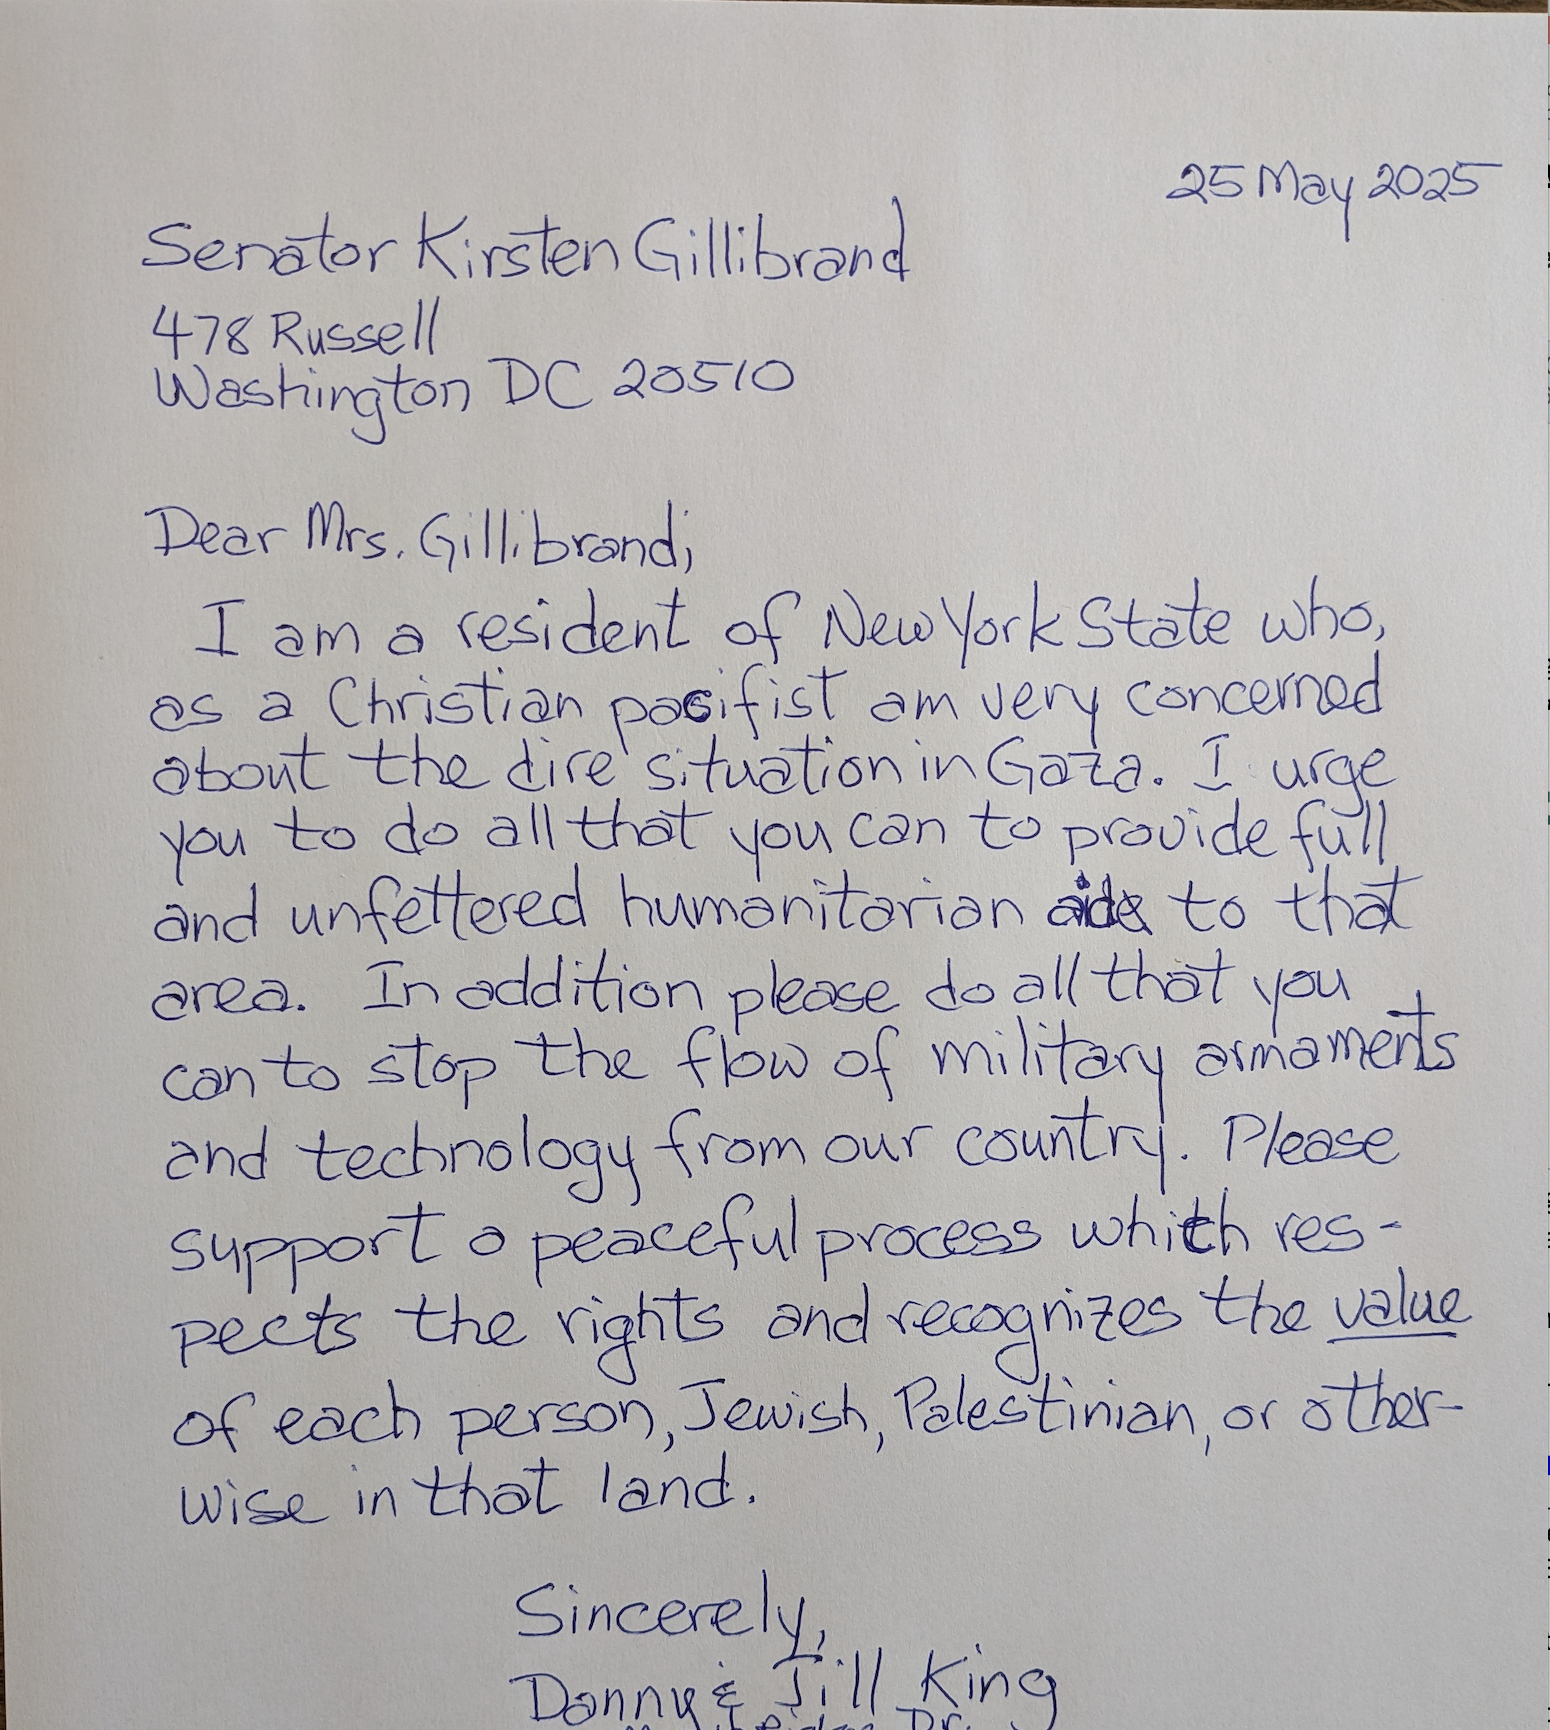 25 May 2025
Senator Kirsten Gillibrand
478 Russell
Washington DC 20510
Dear Mrs. Gillibrand;
I am a resident of New York State who,
as a Christian pacifist am very concerned
about the dire situation in Gaza. I urge
you to do all that you can to provide full
and unfettered humanitarian aide to that
area. In addition please do all that you
can to stop the flow of military armaments
and technology from our country. Please
support a peaceful process which res-
pects the rights and recognizes the value
of each person, Jewish, Palestinian, or other-
wise in that land.
Sincerely,
Danny & Jill King
Dr.